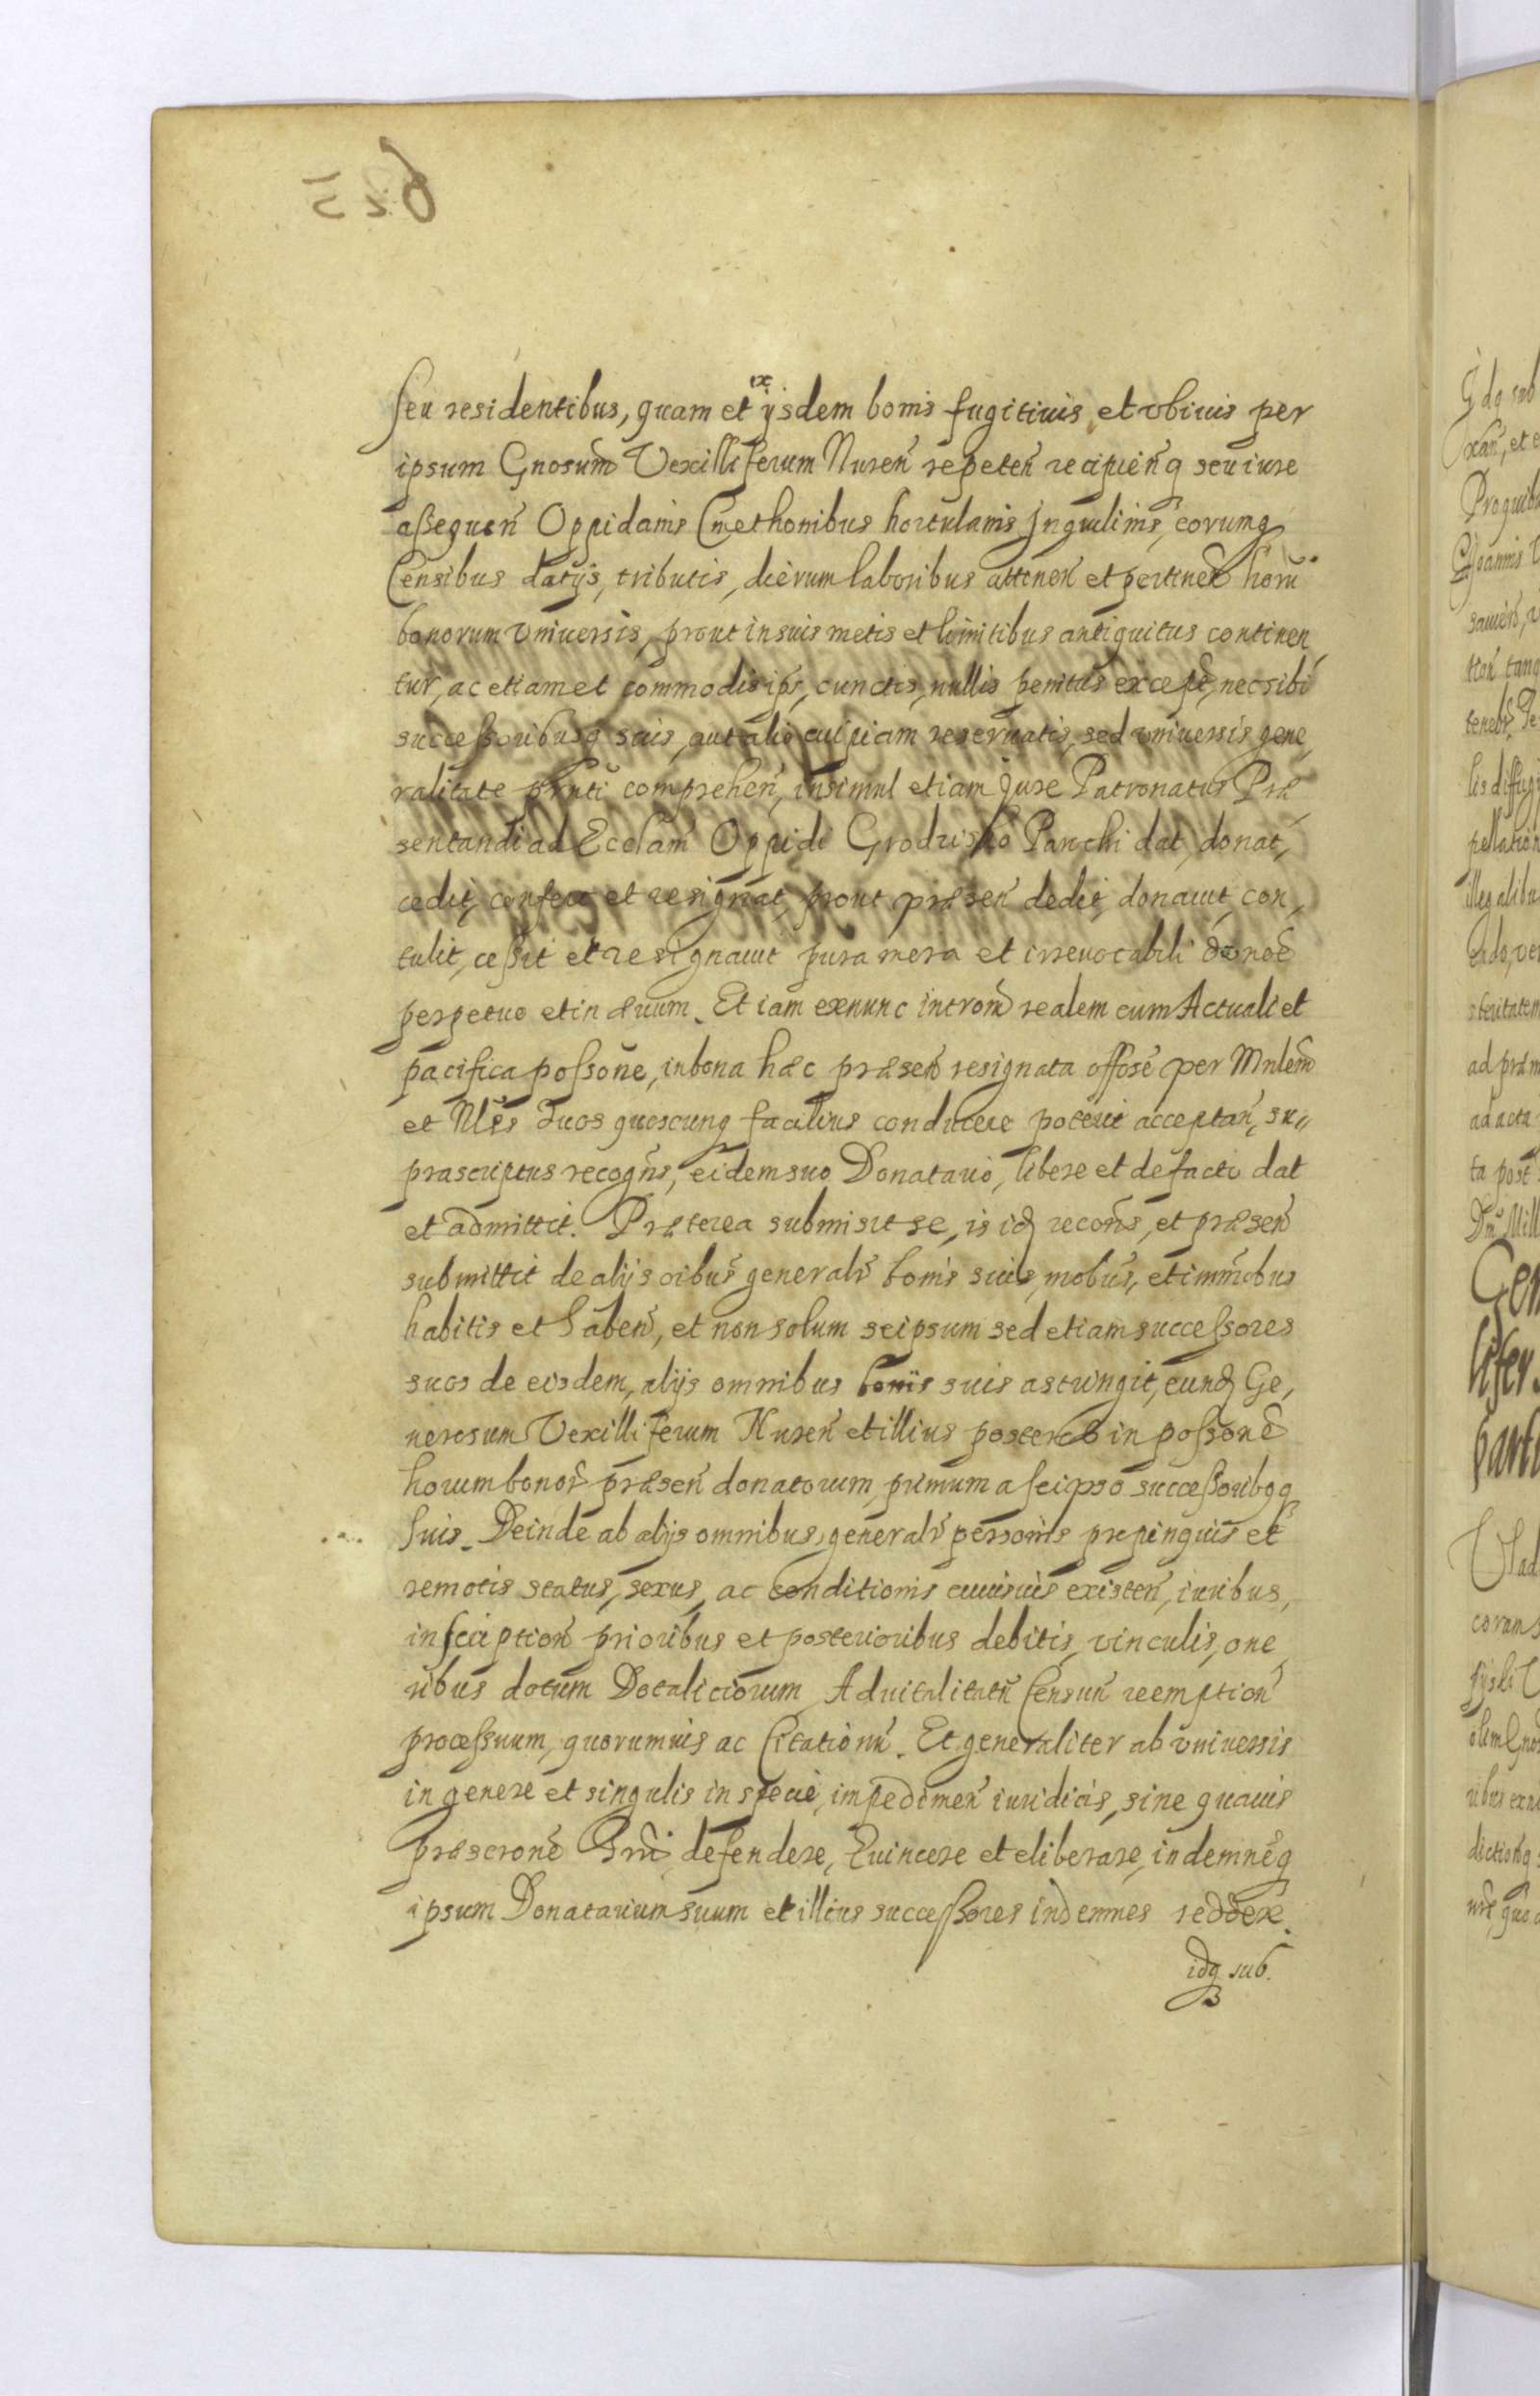 seu residentibus, quam et ex ijsdem bonis fugitiuis et vbiuis per
ipsum Gnosum Vexilliferum Nuren repeten recipienq seu iure
assequen Oppidanis Cmethonibus hortulanis Inquilinis, eorumq
Censibus datijs, tributis, dierum laboribus attinen et pertinen horu
bonorum vniuersis, prout in suis metis et limitibus antiquitus continen
tur, ac etiam et commodis ips, cunctis, nullis penitus except, nec sibi
successoribusq suis, aut alio cuipiam reseruatis, sed vniuersis gene
ralitate comprehen, insimul etiam Jure Patronatus Præ
sentandi ad Ecclam Oppidi Grodzisko Parochi dat, donat,
cedit, confert et resignat, prout præsen dedit, donauit, con,
tulit, cessit et resignauit pura mera et irreuocabili donoe
perpetuo et in æuum. Et iam exnunc introm realem cum Actuali et
pacifica possone, in bona hæc præsen resignata offose per Mnlem
et Nles duos quoscunq facilius conducere poterit acceptan, su
prascriptus recogns, eidem suo Donatario, libere et de facto dat
et admittit. Præterea submisit se, is idq recons, et præsen
submittit de alijs oibus generalr bonis suis, mobus, et immobus
habitis et haben, et non solum seipsum sed etiam successores
suos de eisdem, alijs omnibus bonis suis astringit, eundq Ge,
nerosum Vexilliferum Nuren et illius posteros in possone
horum bonor præsen donatorum, primum a seipso successoribqq
suis. Deinde ab alijs omnibus, generalr personis propinquis et
remotis status, sexus, ac conditionis cuiusuis existen, iuribus,
inscription prioribus et posterioribus debitis, vinculis, one
ribus dotum Dotaliciorum Aduitalitatu Censuu reemption
processuum, quorumuis ac Citationu. Et generaliter ab vniuersis
in genere et singulis in specie, impedimen iuridicis, sine quauis
præscrone defendere, Euincere et eliberare, indemneq
ipsum Donatarium suum et illius successores indemnes reddere.
idq sub.